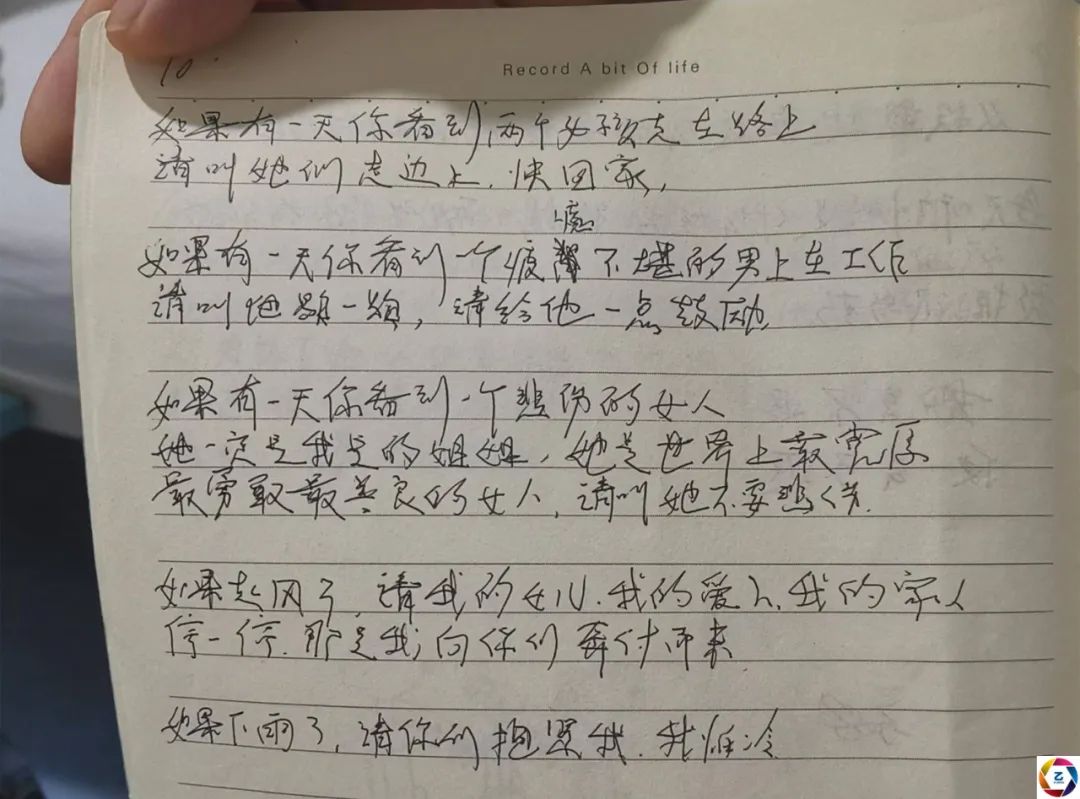 10.
Record A bit Of life
如果有一天你看到两个女孩走在路上
请叫她们走边上，快回家，
惫
如果有一天你看到一个疲惫不堪的男人在工作
请叫他歇一歇，请给他一点鼓励
如果有一天你看到一个悲伤的女人
她一定是我的姐姐，她是世界上最宽厚
最勇敢最善良的女人，请叫她不要悲伤.
如果起风了，请我的女儿.我的爱人.我的家人
停一停.那是我向你们奔付而来
如果下雨了，请你们抱紧我.我怕冷